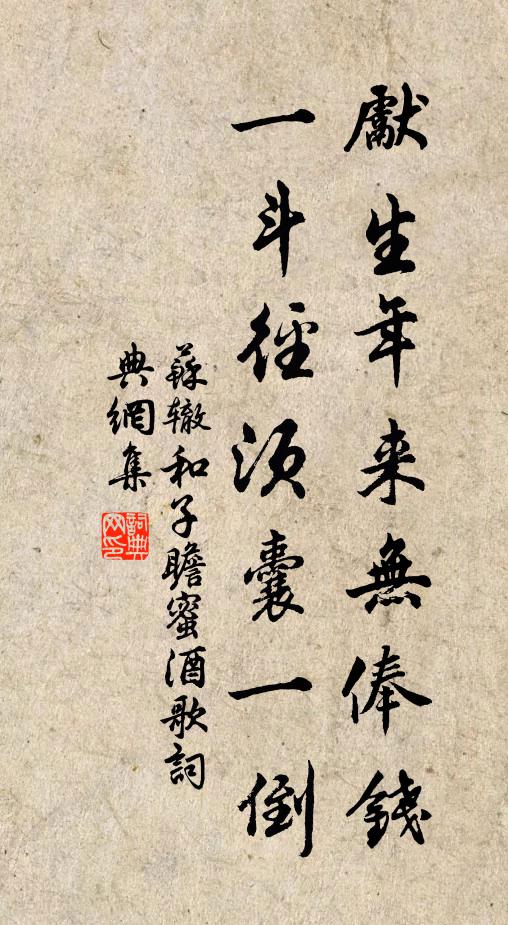 獻生年来無俸錢
一斗徑須囊一倒
蘇辙和子瞻蜜酒歌詞
典網集
詞典
网印